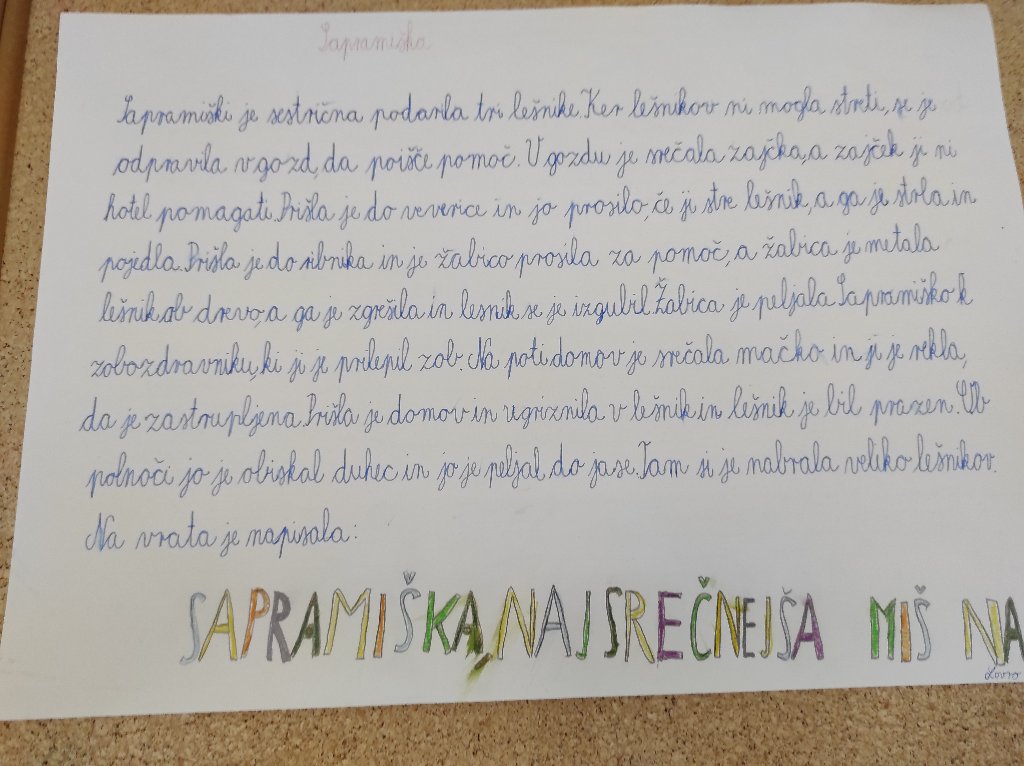 Sapramiška
Sapramiški je sestrična podarila tri lešnike. Ker lešnikov ni mogla streti, se je
odpravila v gozd, da poišče pomoč. V gozdu je srečala zajčka, a zajček ji ni
hotel pomagati. Prišla je do veverice in jo prosilo, če ji stre lešnik, a ga je strla in
pojedla. Prišla je do ribnika in je žabico prosila za pomoč, a žabica je metala
lešnik ob drevo, a ga je zgrešila in lesnik se je izgubil. Žabica je peljala Sapramiško k
zobozdravniku, ki ji je prilepil zob. Na poti domov je srečala mačko in ji je rekla,
da je zastrupljena. Prišla je domov in ugriznila v lešnik in lešnik je bil prazen. Ob
polnoči jo je obiskal duhec in jo je peljal do jase. Tam si je nabrala veliko lešnikov.
Na vrata je napisala:
SAPRAMIŠKA, NAJSREČNEJŠA MIŠ NA
Lovro